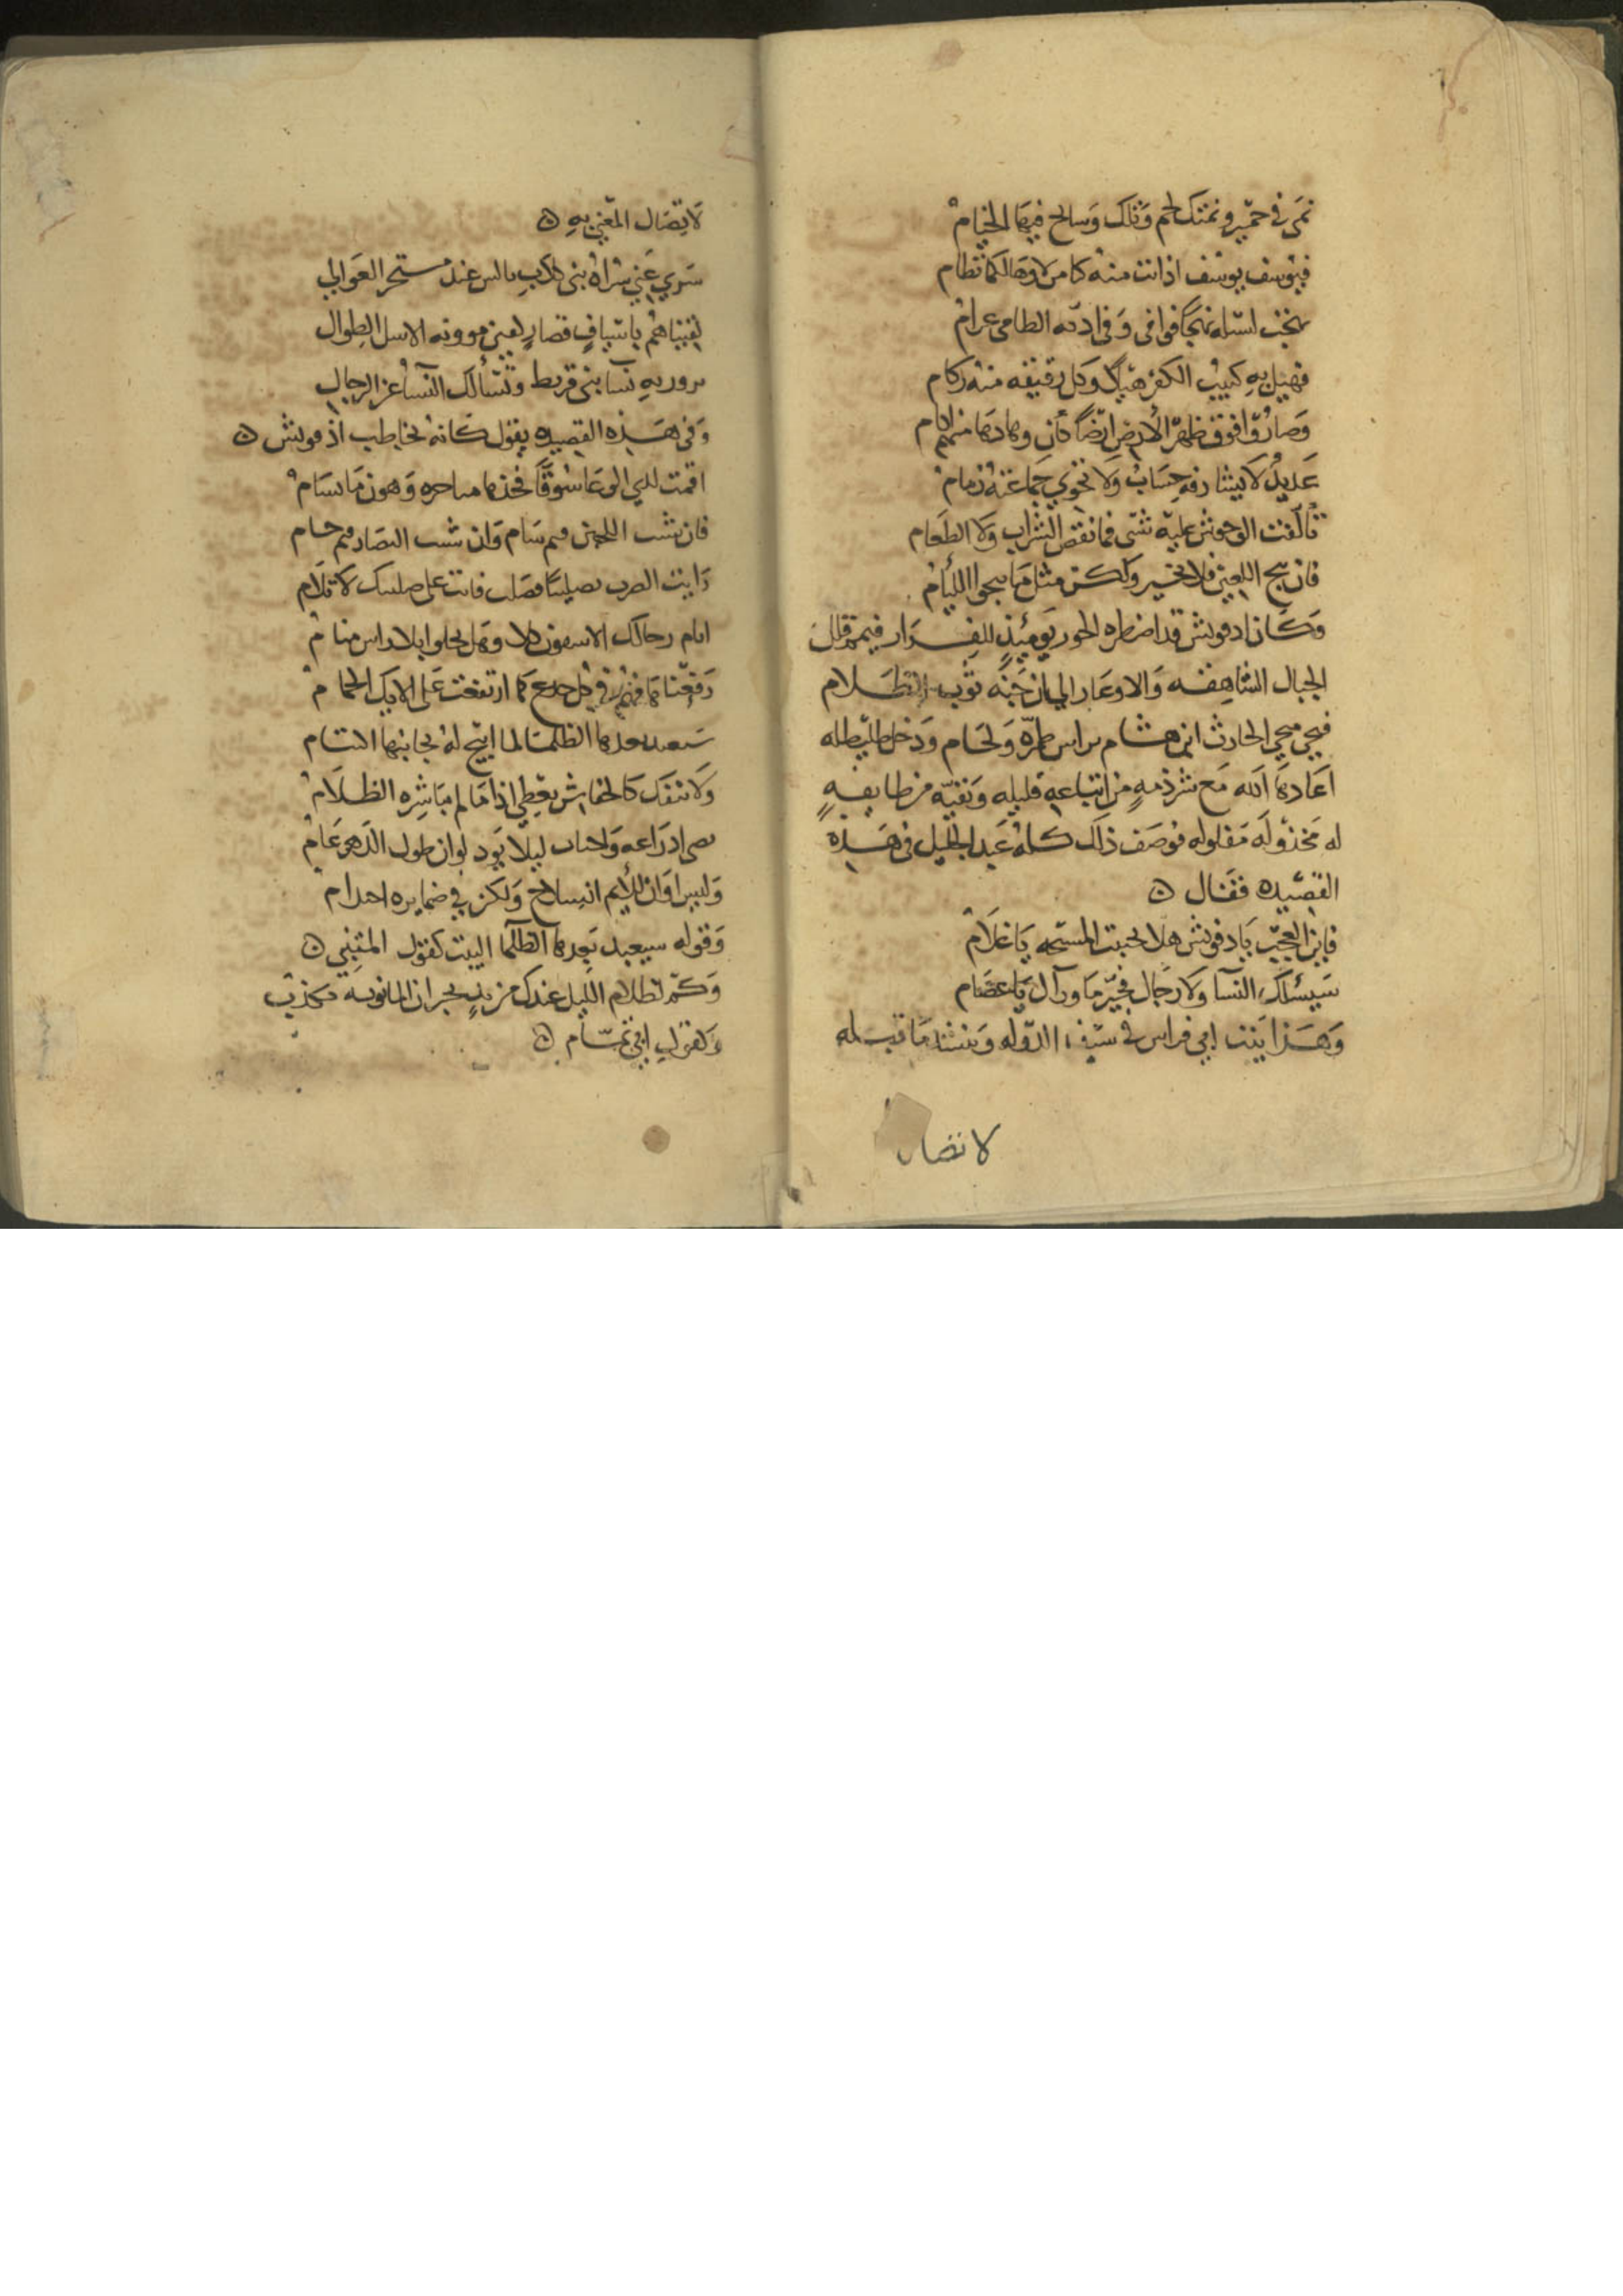 نمى في حمير ونمتك لخم وتلك وسايح فيها الخيام
فيوسف يوسف اذ انت منه كامن لا وهى لكما نظام
نهجت لسيله نهجا فوافى وفي اديه الطامي عرام
فهيل به كثيب الكفر هيلا وكل رقيقه منه ركام
وصاروا فوق ظهر الارض ارضا كان وهادها منهم اكام
عديد لا يشارفه حساب ولا تحوي جماعته زمام
تالفت الوحوش عليه شتى فما نقص الشراب ولا الطعام
فان ينج اللعين فلا كخير ولكن مثل ما ينجوا اللئام
وكان ادفونش قد اضطره الخور يوميذ للفرار فيمم قلل
الجبال الشاهقه والاوعار الي ان جنه ثوب الظلام
فنجي منجي الحارث ابن هشام براس طمرة ولجام ودخل طليطله
اعادها الله مع شرذمه من اتباعه قليله وبقيه من طايفة
له مخذوله مفلوله فوصف ذلك كله عبد الجليل في هذه
القصيده فقال ه
فاين العجب يا ادفونش هلا تجنبت المسيحه يا غلام
سيسئلك النسا ولا رجال فخبر ما ورآك يا عصام
وهذا بيت ابي فراس في سيف الدوله وننشد ما قبله
لاتصال
لاتصال المعني به ه
سري عني سراة بني كلاب ببالس عند مستجر العوالي
لقيناهم باسياف قصار كفين موونه الاسل الطوال
وفي هذه القصيده يقول كانه يخاطب اذفونش ه
اقمت لدي الوغا سوقا فخذها مناجزه وهون ما تسام
فان شئت اللجين فثم سام وان شئت النضار فثم حام
رايت الضرب تصليبا فصلب فانت على صليبك لا تلام
رفعنا هامهم في كل جذع كما ارتفعت على الايك الحمام
سيعبد بعدها الظلما لما اتيح له بجانبها اكتتام
ولا ينفك كالخفاش يغضي اذا ما لم يباشره الظلام
نضى ادراعه واجتاب ليلا يود لو ان طول الدهر عام
وليس اوان للايم انسلاخ ولكن في ضمايره احتدام
وقوله سيعبد بعدها الظلما البيت كقول المتنبي ه
وكم لظلام الليل عندك من يد تخبر ان المانويه تكذب
وكقول ابي تمام ه